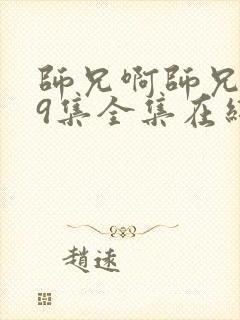 師兄啊師兄
9集全集在
趙遠